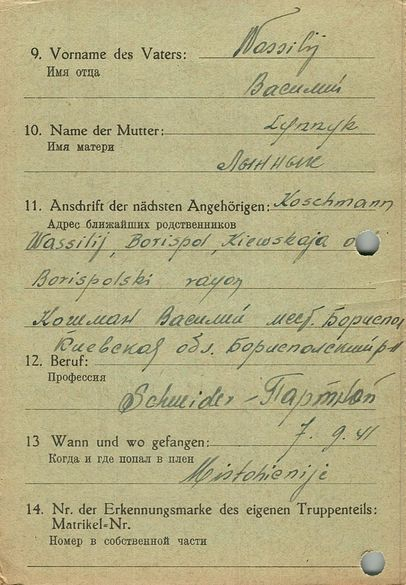 9. Vorname des Vaters: Wassilij
Имя отца
Василий
10. Name der Mutter: Lynnyk
Имя матери
Лыннык
11. Anschrift der nächsten Angehörigen: Koschmann
Адрес ближайших родственников
Wassilij, Borispol, Kiewskaja
Borispolski rayon
Кошман Василий мест. Бориспол
Киевская обл. Бориспольский р-н
12. Beruf:
Профессия
Schneider - Портной
13 Wann und wo gefangen: 7. 9. 41
Когда и где попал в плен
14. Nr. der Erkennungsmarke des eigenen Truppenteils:
Matrikel=Nr.
Номер в собственной части